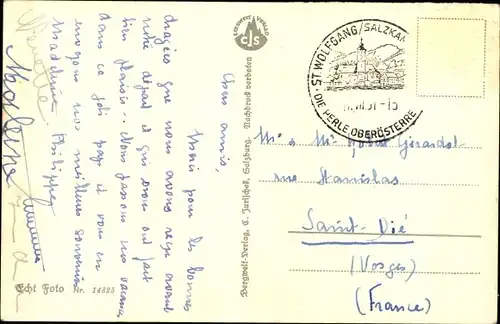 Chers amis,
Merci pour les bonnes
dragées que nous avons reçu avant
notre départ et qui nous ont fait
bien plaisir. Nous passons nos vacances
dans ce joli pays et vous en
envoyons nos meilleurs souvenirs
Madeleine Philippe
Echt Foto Nr. 14825
CJS
Bergwelt-Verlag, C. Jurischek, Salzburg. Nachdruck verboten
ST. WOLFGANG/SALZKAM
DIE PERLE OBERÖSTERRE
Mr & Me Robert Gérardot
rue Stanislas
Saint-Dié
(Vosges)
(France)